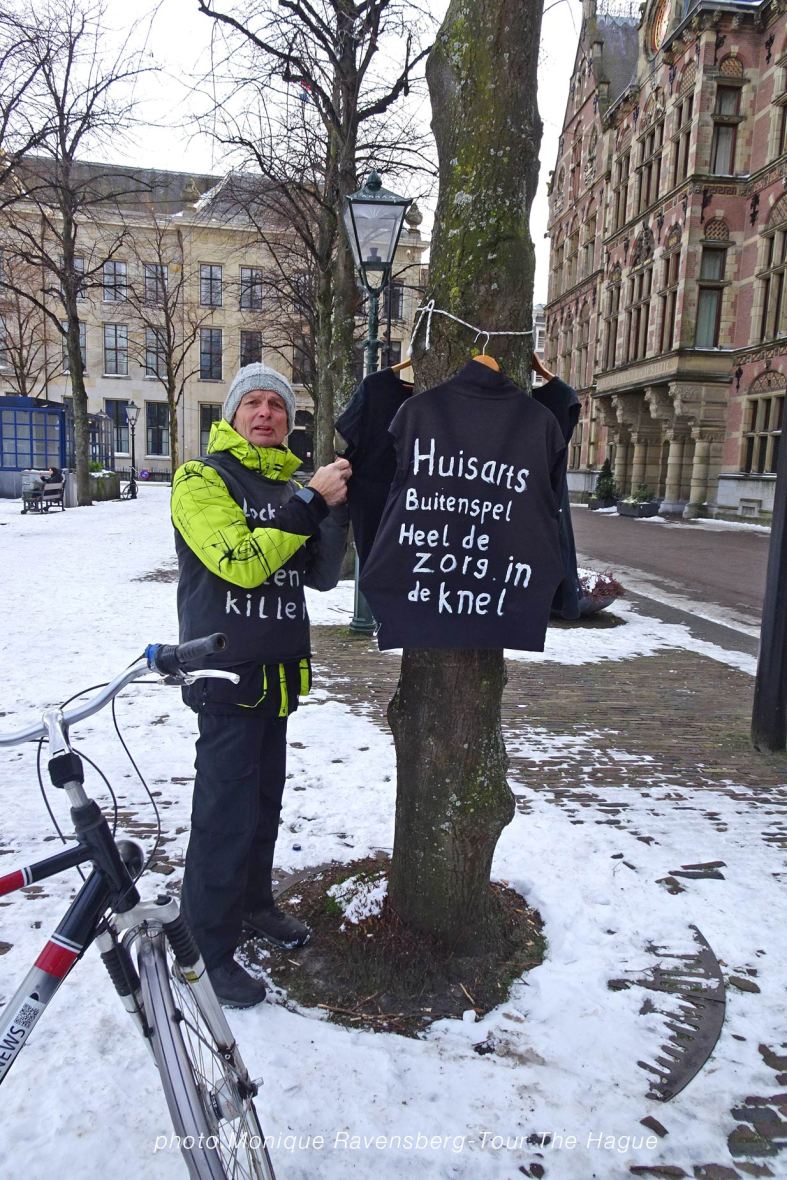 Huisarts
Buitenspel
Heel de
zorg in
de knel
killen
NEWS
photo Monique Ravensberg-Tour The Hague